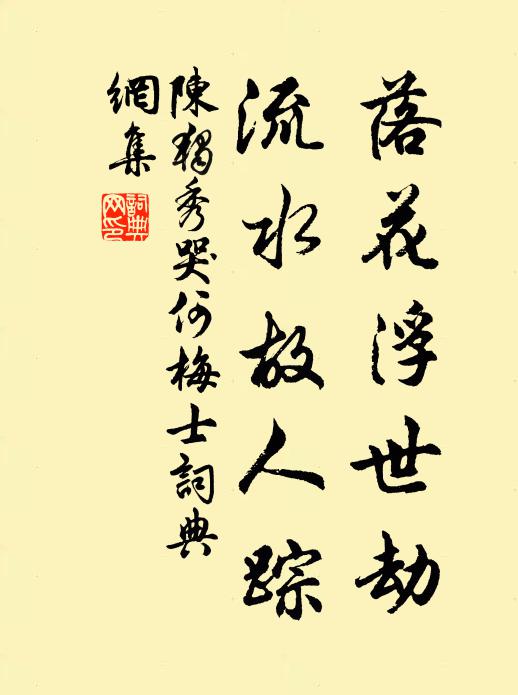 落花浮世劫
流水故人踪
陳獨秀哭何梅士詞典
網集
詞典網印